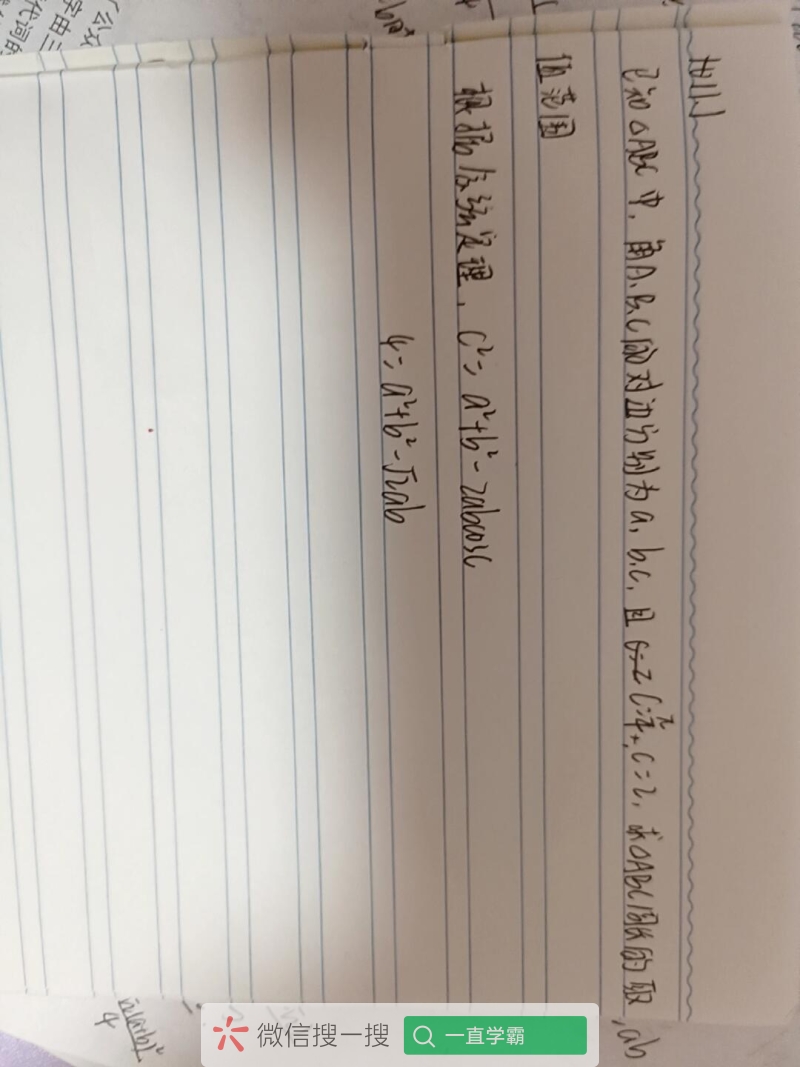 已知△ABC中,角A,B,C的对边分别为a,b,c,且C=π/4,c=2,求△ABC周长的取
值范围
根据余弦定理,c²=a²+b²-2abcosC
4=a²+b²-√2ab
,ab
微信搜一搜
一直学霸